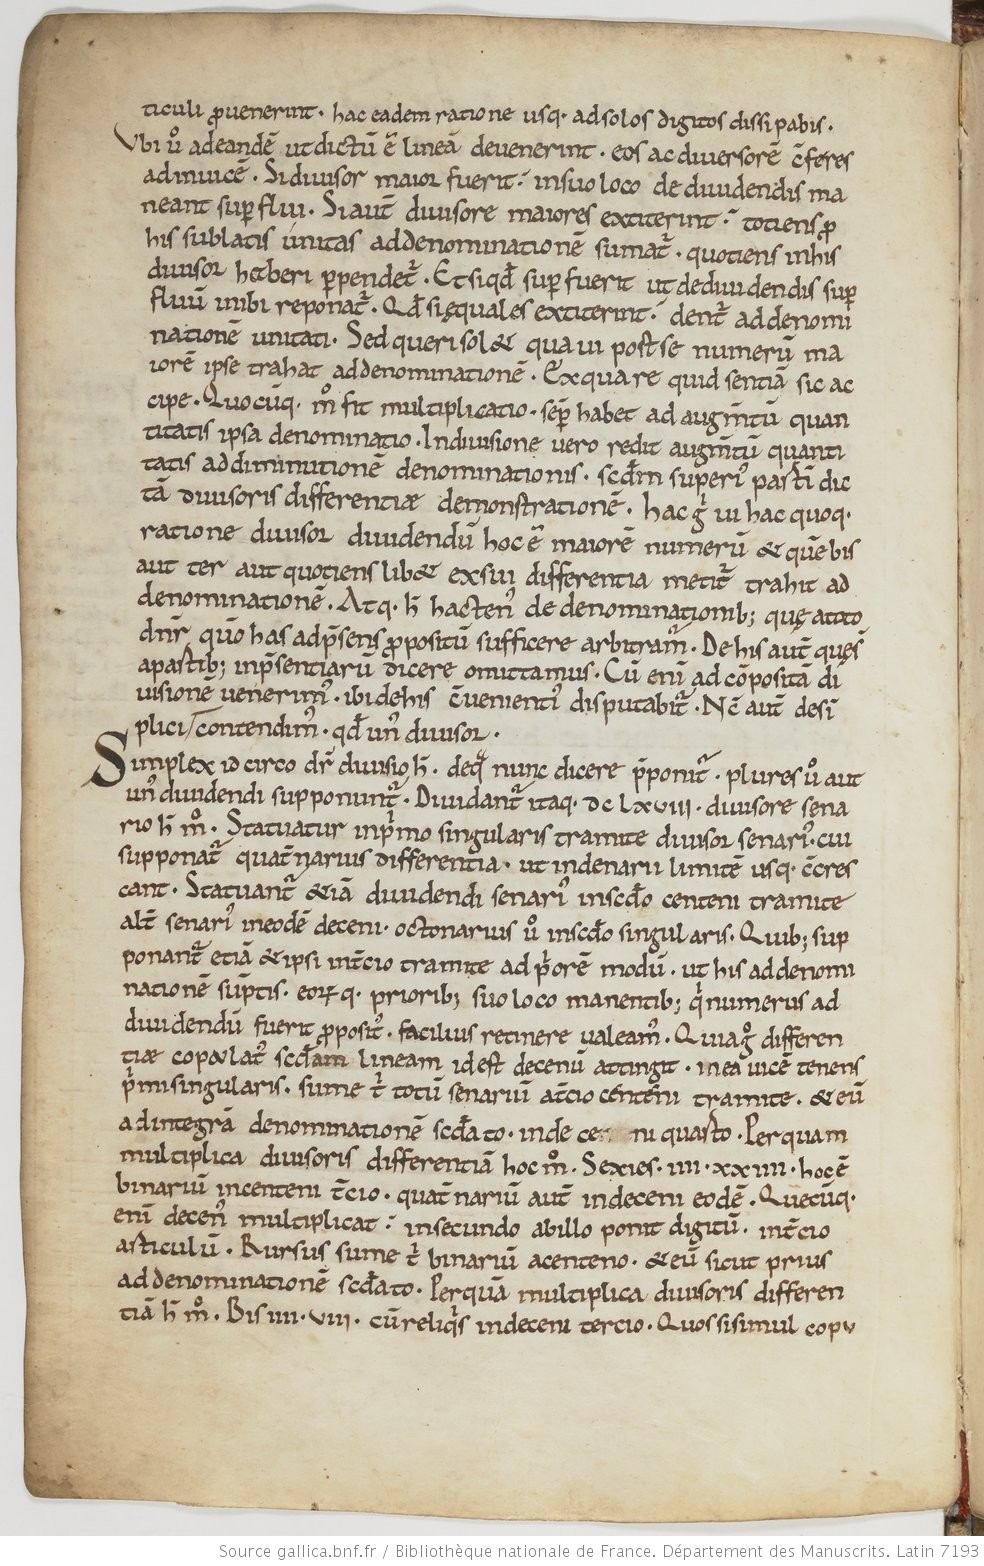 ticuli ꝓuenerint · hac eadem ratione usq· ad solos digitos dissipabis ·
Vbi u̾ ad eandē ut dictū ē lineā deuenerint · eos ac diuersorē c̄feres
ad inuicē · Si diuisor maior fuerit · in suo loco de diuidendis ma
neant suꝑflui · Si aut̄ diuisore maiores extiterint · totiens ꝓ
his sublatis unitas ad denominationē sumat᷑ · quotiens in his
diuisor haberi ꝑpendet᷑ · Et siqd̄ suꝑfuerit ut de diuidendis suꝑ
fluū in ibi reponat᷑ · Qd̄ si ęquales extiterint · dent᷑ ad denomi
nationē unitati · Sed queri sol& qua ui post se numerū ma
iorē ipse trahat ad denominationē · Ex qua re quid sentiā sic ac
cipe · Quocūq· m̊ fit multiplicatio · seꝑ habet ad augm̄tū quan
titatis ipsa denominatio · In diuisione uero redit augm̄tū quanti
tatis ad diminutionē denominationis · scd̄m superi᷒ pastī dic
tā diuisoris differentiæ demonstrationē · hac g̊ ui hac quoq·
ratione diuisor diuidendū hoc ē maiorē numerū & quē bis
aut ter aut quotiens lib& ex sui differentia metit᷑ trahit ad
denominationē · Atq· h̄ hacten᷒ de denominationib; quę a toto
dn̄r quō has ad p̄sens ꝓpositū sufficere arbitram᷑ · De his aut̄ quęs̄
a pastib; in p̄sentiarū dicere omittamus · Cū enī ad cōpositā di
uisionē uenerim᷒ · ibi de his c̄uenienti᷒ disputabit᷑ · Nc̄ aut̄ de sī
plici contendim᷒ · qd̄ un᷒ diuisor ·
Simplex idcirco dr̄ diuisio h̄ · de qͣ nunc dicere p̄ponit᷑ · plures u̾ aut
un᷒ diuidendi supponunt᷑ · Diuidant᷑ itaq· dclxviii · diuisore sena
rio h̄ m̊ · Statuatur in pͥmo singularis tramite diuisor senari᷒ · cui
supponat᷑ quat̄narius differentia · ut in denarii limitē usq· c̄cres
cant · Statuant᷑ &iā diuidendi senari᷒ in scd̄o centeni tramite
alt̄ senari᷒ in eodē deceni · octonarius u̾ in scd̄o singularis · Quib; sup
ponant᷑ etiā & ipsi in t̄cio tramite ad pͥorē modū · ut his ad denomi
nationē sūptis · eoꝝq· priorib; suo loco manentib; qͥ numerus ad
diuidendū fuerit ꝓposit᷒ · facilius retinere ualeam᷒ · Quia g̊ differen
tiæ copulat᷒ scd̄am lineam id est decenū attingit · in ea uicē tenens
pͥmi singularis · sume t̄ͥ totū senariū a t̄cio centeni tramite · & eū
ad integrā denominationē scd̄ato · inde ni quasto · Per quam
multiplica diuisoris differentiā hoc m̊ · Sexies · iiii · xxiiii · hoc ē
binariū in centeni t̄cio · quat̄nariū aut̄ in deceni eodē · Quecūq·
enī decen᷒ multiplicat · in secundo ab illo ponit digitū · in t̄cio
asticulū · Rursus sume t̄ͥ binariū a centeno · & eū sicut prius
ad denominationē scd̄ato · Per quā multiplica diuisoris differen
tiā h̄ m̊ · Bis iiii · viii · cū reliqͥs in deceni tercio · Quos si simul copu
Source gallica.bnf.fr / Bibliothèque nationale de France. Département des Manuscrits. Latin 7193